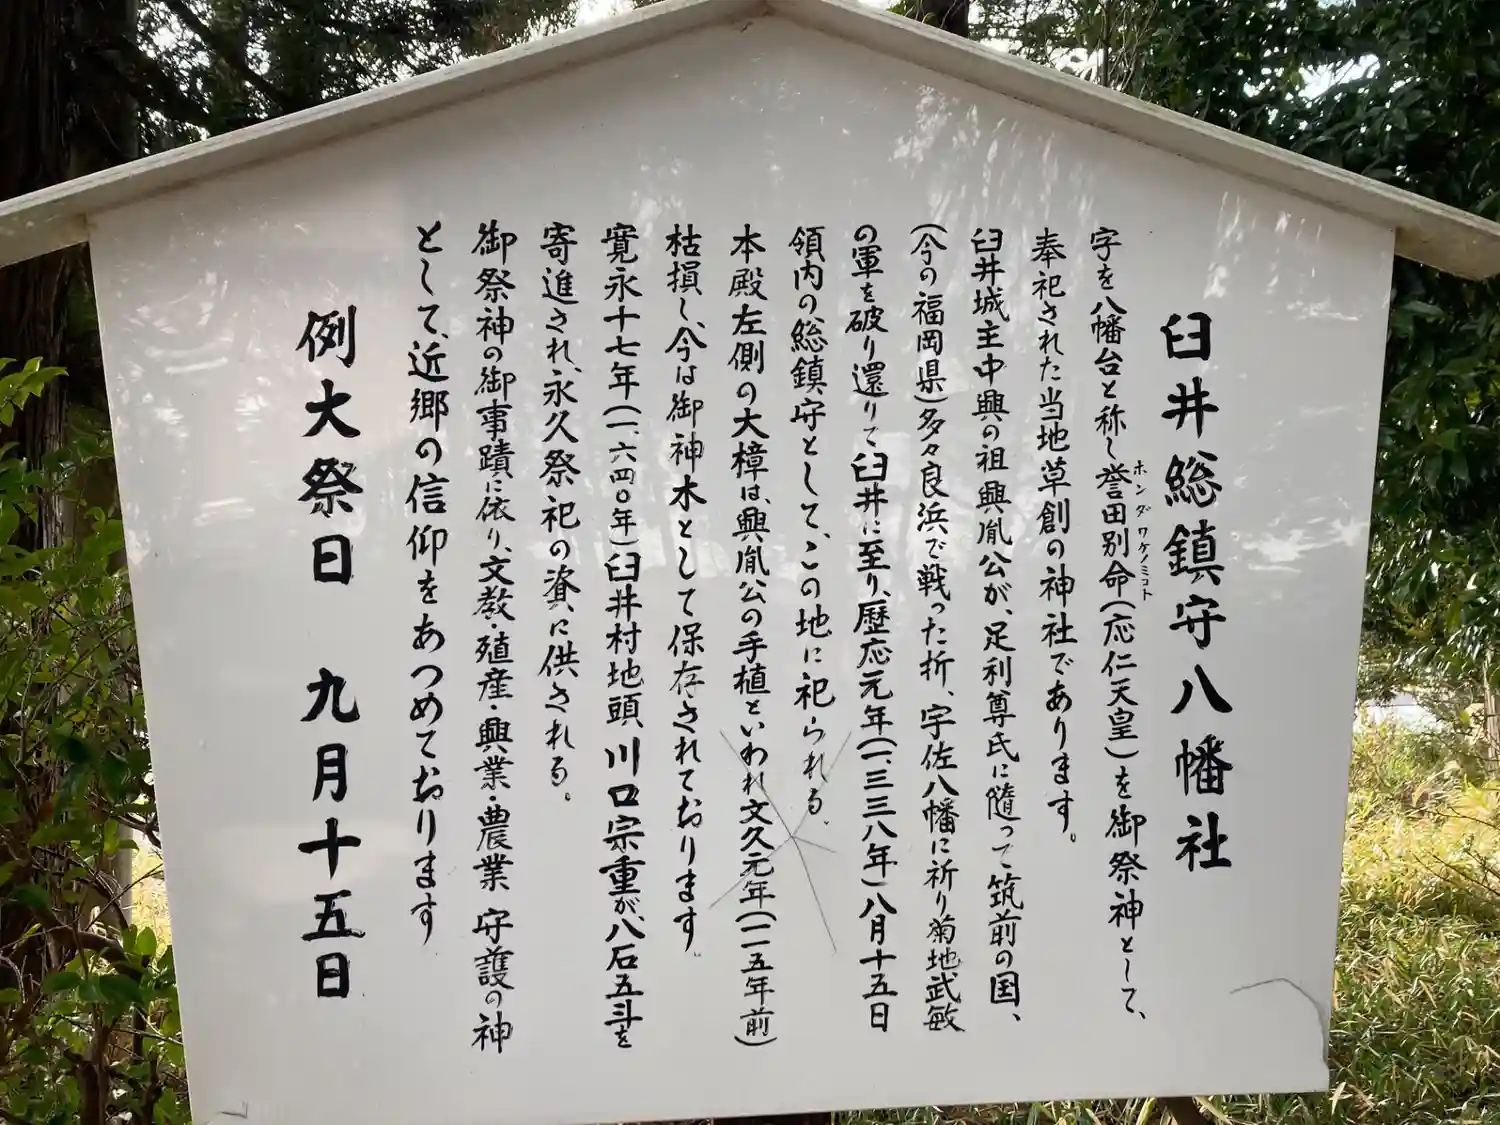 臼井総鎮守八幡社
字を八幡台と称し誉田別命(応仁天皇)を御祭神として、
ホンダワケノミコト
奉祀された当地草創の神社であります。
臼井城主中興の祖興胤公が、足利尊氏に隨って筑前の国、
(今の福岡県)多々良浜で戦った折、宇佐八幡に祈り菊地武敏
の軍を破り還りて臼井に至り、歴応元年(一、三三八年)八月十五日
領内の総鎮守として、この地に祀られる。
本殿左側の大樟は、興胤公の手植といわれ文久元年(一一五年前)
枯損し、今は御神木として保存されております。
寛永十七年(一、六四〇年)臼井村地頭川口宗重が、八石五斗を
寄進され、永久祭祀の資に供される。
御祭神の御事蹟に依り、文教・殖産・興業・農業 守護の神
として、近郷の信仰をあつめております
例大祭日 九月十五日